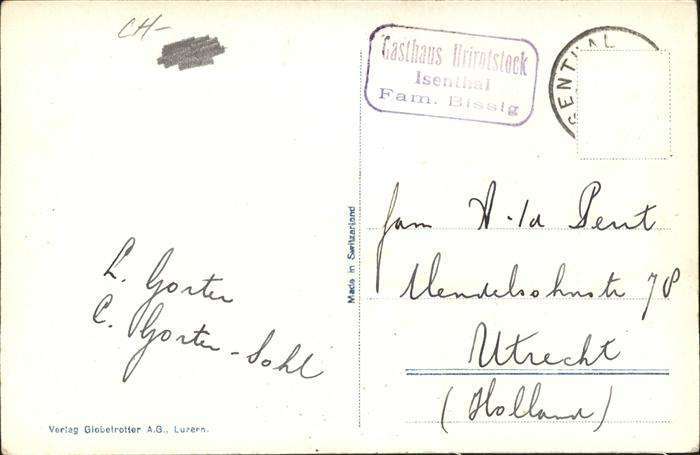 CH-
Gasthaus Urirotstock
Isenthal
Fam. Bissig
SENTHAL
Made in Switzerland
L. Gorter
C. Gorter-Sohl
fam
Mendelsohnstr 78
Utrecht
(Holland)
Verlag Globetrotter A.G., Luzern.